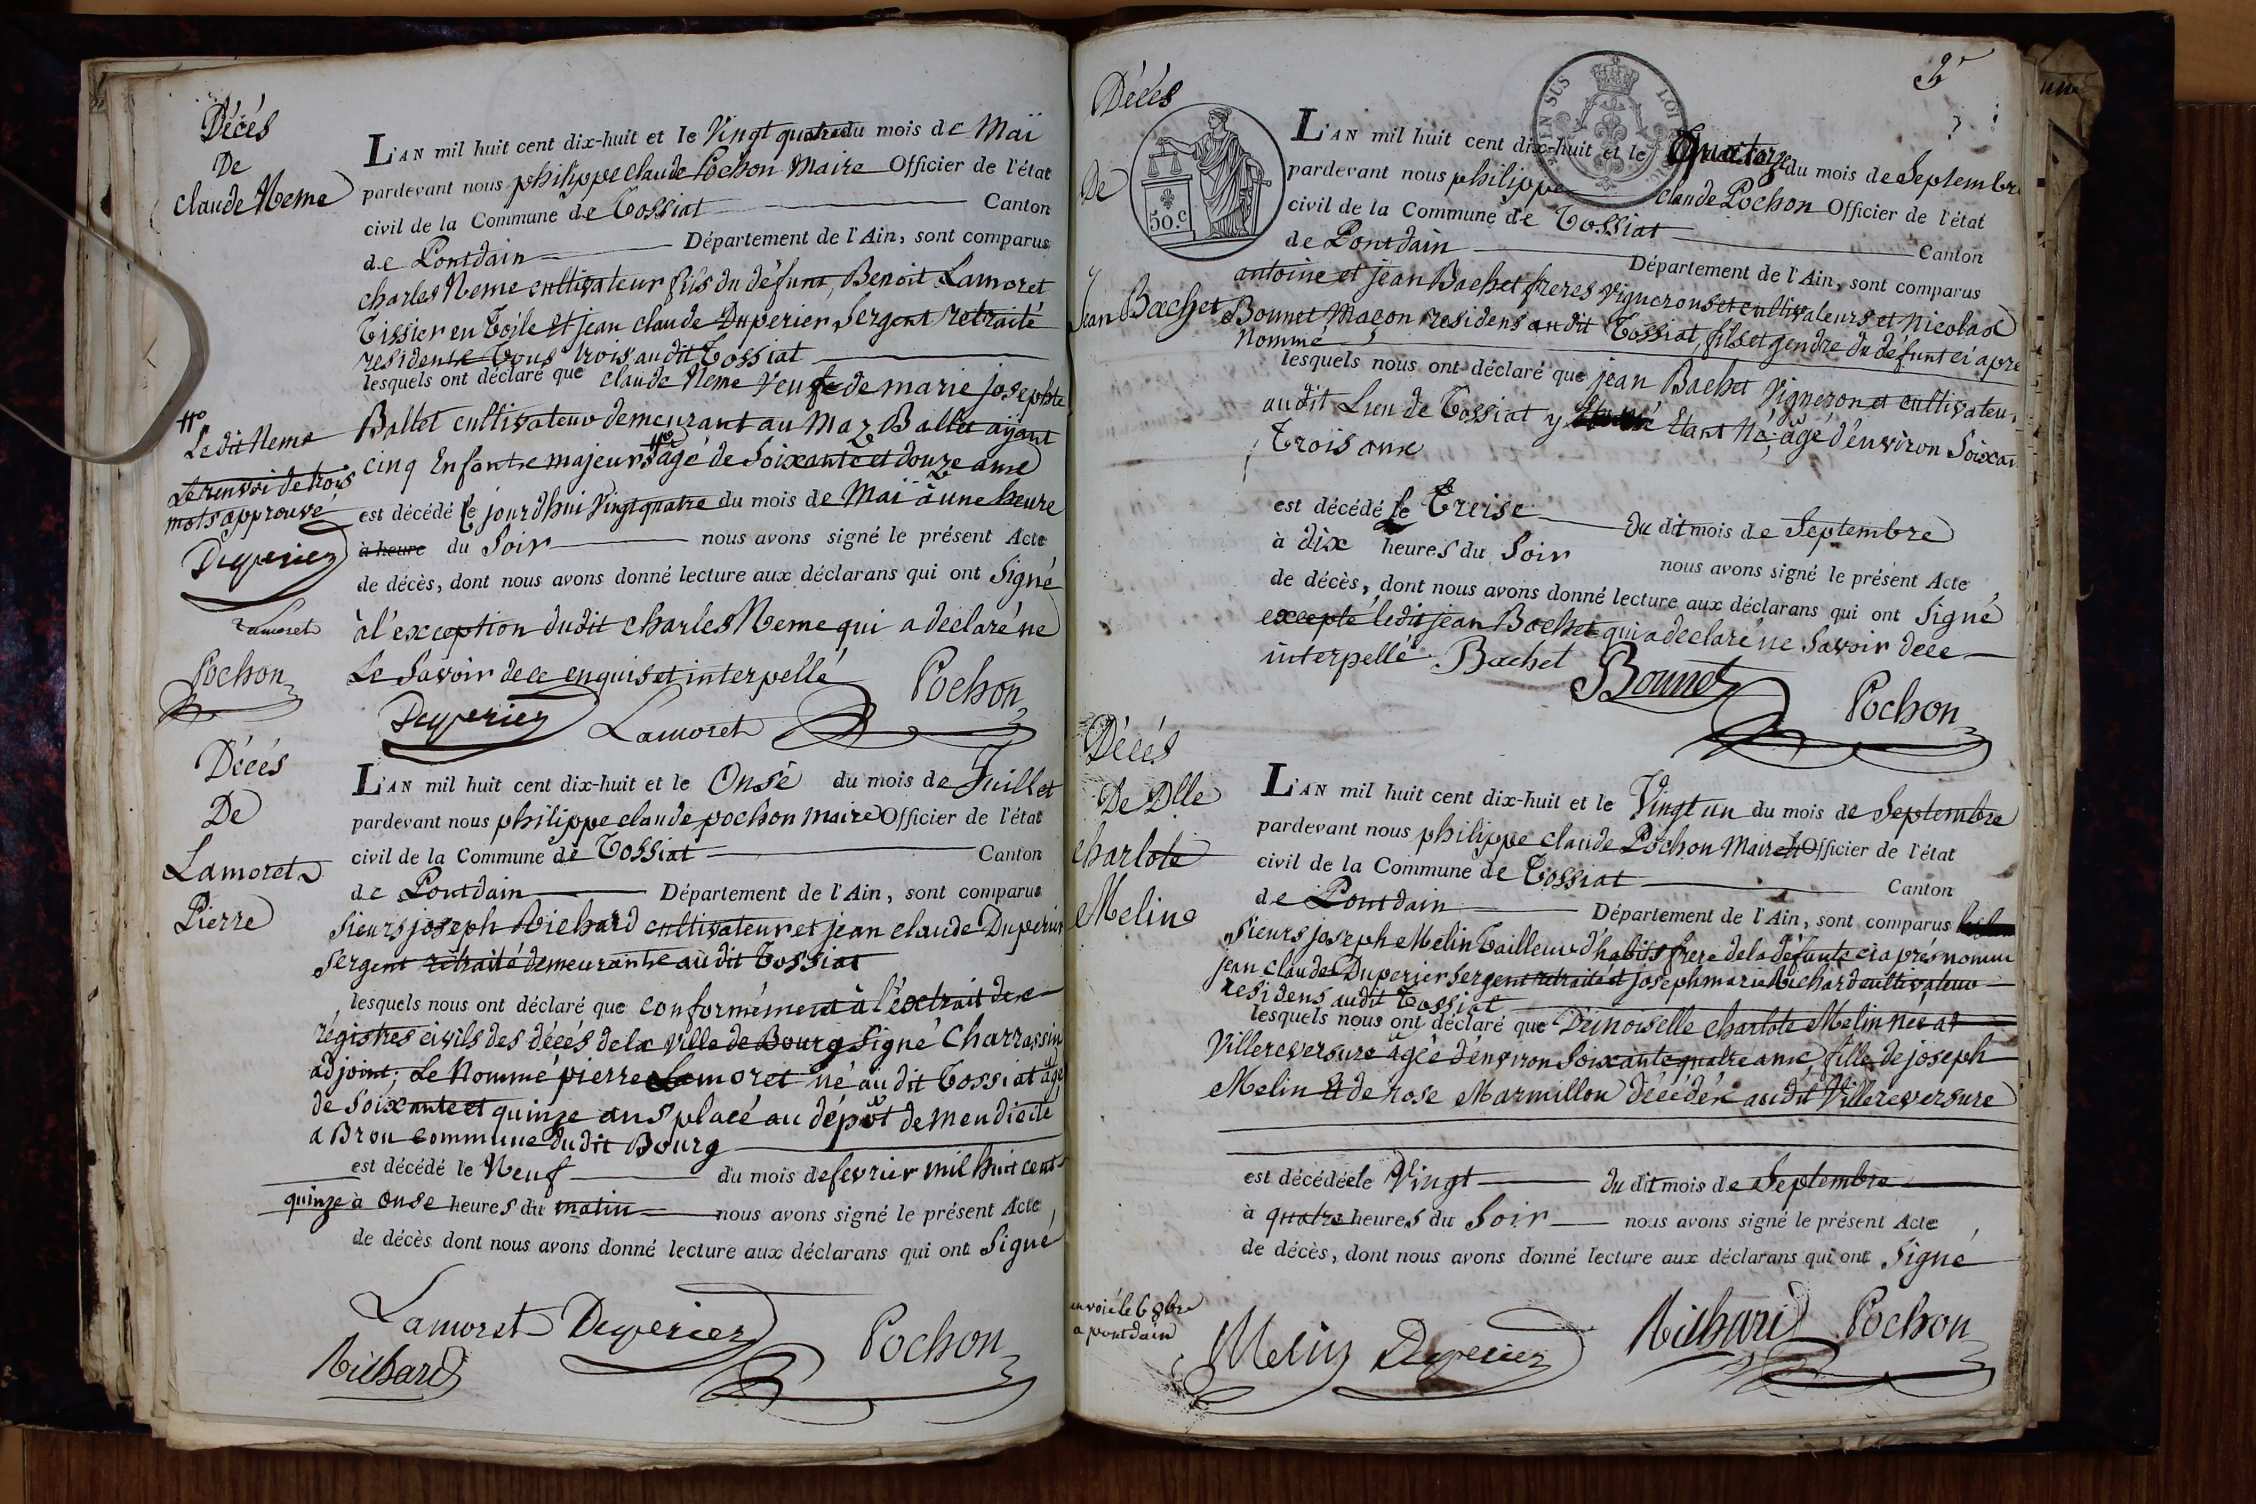 Décés
De
Claude Neme
L'AN mil huit cent dix-huit et le Vingt quatre du mois de Maï
pardevant nous philippe claude Pochon Maire Officier de l'état
civil de la Commune de Tossiat Canton
de Pontdain Département de l'Ain, sont comparus
charles Neme cultivateur fils du défunt, Benoit Lamoret
Tissier en Toile et jean claude Duperier Sergent retraité
residents Tous trois audit Tossiat
lesquels ont déclaré que claude Neme Veuf de marie josephte
Ballet cultivateur demeurant au Maz Ballet aÿant
cinq Enfants majeurs agé de Soixante et douze ans
Ledit Neme
Le renvoi de trois
mots approuvé
Duperier
Lamoret
Pochon
est décédé le jourdhui Vingt quatre du mois de Maï à une heure
à heure du Soir nous avons signé le présent Acte
de décès, dont nous avons donné lecture aux déclarans qui ont Signé
à l'exception dudit charles Neme qui a déclaré ne
Le Savoir de ce enquis et interpellé
Duperier Lamoret Pochon
Décés
De
Lamoret
Pierre
L'AN mil huit cent dix-huit et le Onse du mois de Juillet
pardevant nous philippe claude pochon maire Officier de l'état
civil de la Commune de Tossiat Canton
de Pontdain Département de l'Ain, sont comparus
Sieurs joseph Richard cultivateur et jean claude Duperier
Sergent retraité demeurants audit Tossiat
lesquels nous ont déclaré que conformément à l'extrait des
régistres civils des décés de la Ville de Bourg Signé Charrassin
adjoint, Le Nommé pierre Lamoret né audit Tossiat agé
de Soixante et quinze ans placé au dépôt de mendicité
a Brou commune dudit Bourg
est décédé le Neuf du mois de fevrier mil huit cent
quinze à onse heures du matin nous avons signé le présent Acte
de décès dont nous avons donné lecture aux déclarans qui ont Signé
Lamoret Duperier Pochon
Richard
2e
Décés
De
Jean Bachet
50.c
EN SUS LOI
L'AN mil huit cent dix-huit et le Quatorze du mois de Septembre
pardevant nous philippe claude Pochon Officier de l'état
civil de la Commune de Tossiat Canton
de Pontdain Département de l'Ain, sont comparus
antoine et jean Bachet freres Vignerons et cultivateurs et Nicolas
Bonnet Maçon residens audit Tossiat, fils et gendre du défunt ci apre
Nommé
lesquels nous ont déclaré que jean Bachet Vigneron et cultivateur
audit Lieu de Tossiat y Etant Né, agé d'environ Soixan
Trois ans
est décédé le Treise du dit mois de Septembre
à dix heures du Soir nous avons signé le présent Acte
de décès, dont nous avons donné lecture aux déclarans qui ont Signé
excepté ledit jean Bachet qui a déclaré ne Savoir de ce
interpellé Bachet Bonnet Pochon
Décés
De Dlle
Charlote
Melin
L'AN mil huit cent dix-huit et le Vingt un du mois de Septembre
pardevant nous philippe claude Pochon Maire et Officier de l'état
civil de la Commune de Tossiat Canton
de Pontdain Département de l'Ain, sont comparus
Sieurs joseph Melin Tailleur d'habits frere de la défunte ci après nommée
jean claude Duperier Sergent retraité et joseph marie Richard cultivateur
residens audit Tossiat
lesquels nous ont déclaré que Demoiselle charlote Melin née at
Villereversure agée d'environ Soixante quatre ans, fille de joseph
Melin et de rose Marmillon décédés audit Villereversure
est décédée le Vingt du dit mois de Septembre
à quatre heures du Soir nous avons signé le présent Acte
de décès, dont nous avons donné lecture aux déclarans qui ont Signé
envoié le 6 8bre
a pontdain
Melin Duperier Richard Pochon